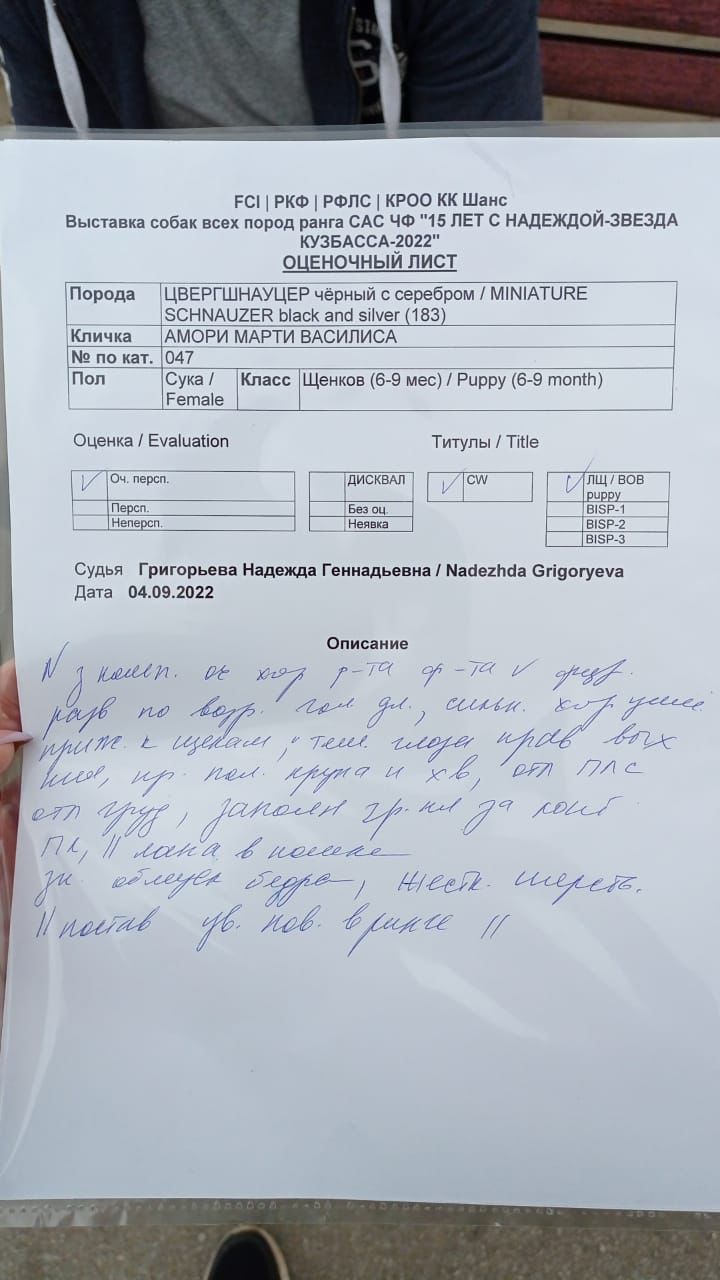 FCI | РКФ | РФЛС | КРОО КК Шанс
Выставка собак всех пород ранга САС ЧФ "15 ЛЕТ С НАДЕЖДОЙ-ЗВЕЗДА
КУЗБАССА-2022"
ОЦЕНОЧНЫЙ ЛИСТ
Порода ЦВЕРГШНАУЦЕР чёрный с серебром / MINIATURE
SCHNAUZER black and silver (183)
Кличка АМОРИ МАРТИ ВАСИЛИСА
№ по кат. 047
Пол Сука / Класс Щенков (6-9 мес) / Puppy (6-9 month)
Female
Оценка / Evaluation Титулы / Title
Оч. персп. ДИСКВАЛ CW ЛЩ / BOB
puppy
Персп. Без оц. BISP-1
Неперсп. Неявка BISP-2
BISP-3
Судья Григорьева Надежда Геннадьевна / Nadezhda Grigoryeva
Дата 04.09.2022
Описание
оч хор р-та ф-та
разв по возр. гол дл., сильн. хор уши
к щекам, тем. глаза прав вых
пол. крупа и хв, отл
отл груд, заполн за
в
бедра, жестк. шерсть.
постав ув. пов. в ринге